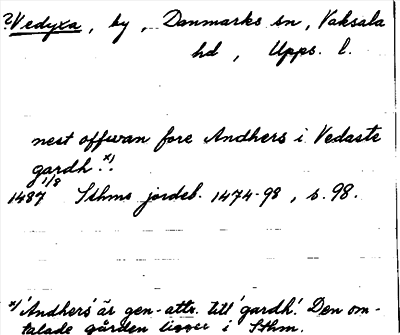 ?Vedyxa, by, Danmarks sn, Vaksala
hd, Upps. l.
nest offwan fore Andhers i Vedaste
gardh x).
1487 1/8 Sthms jordeb. 1474-98, s. 98.
x) 'Andhers' är gen.-attr. till 'gardh'. Den om-
talade gården ligger i Sthm.